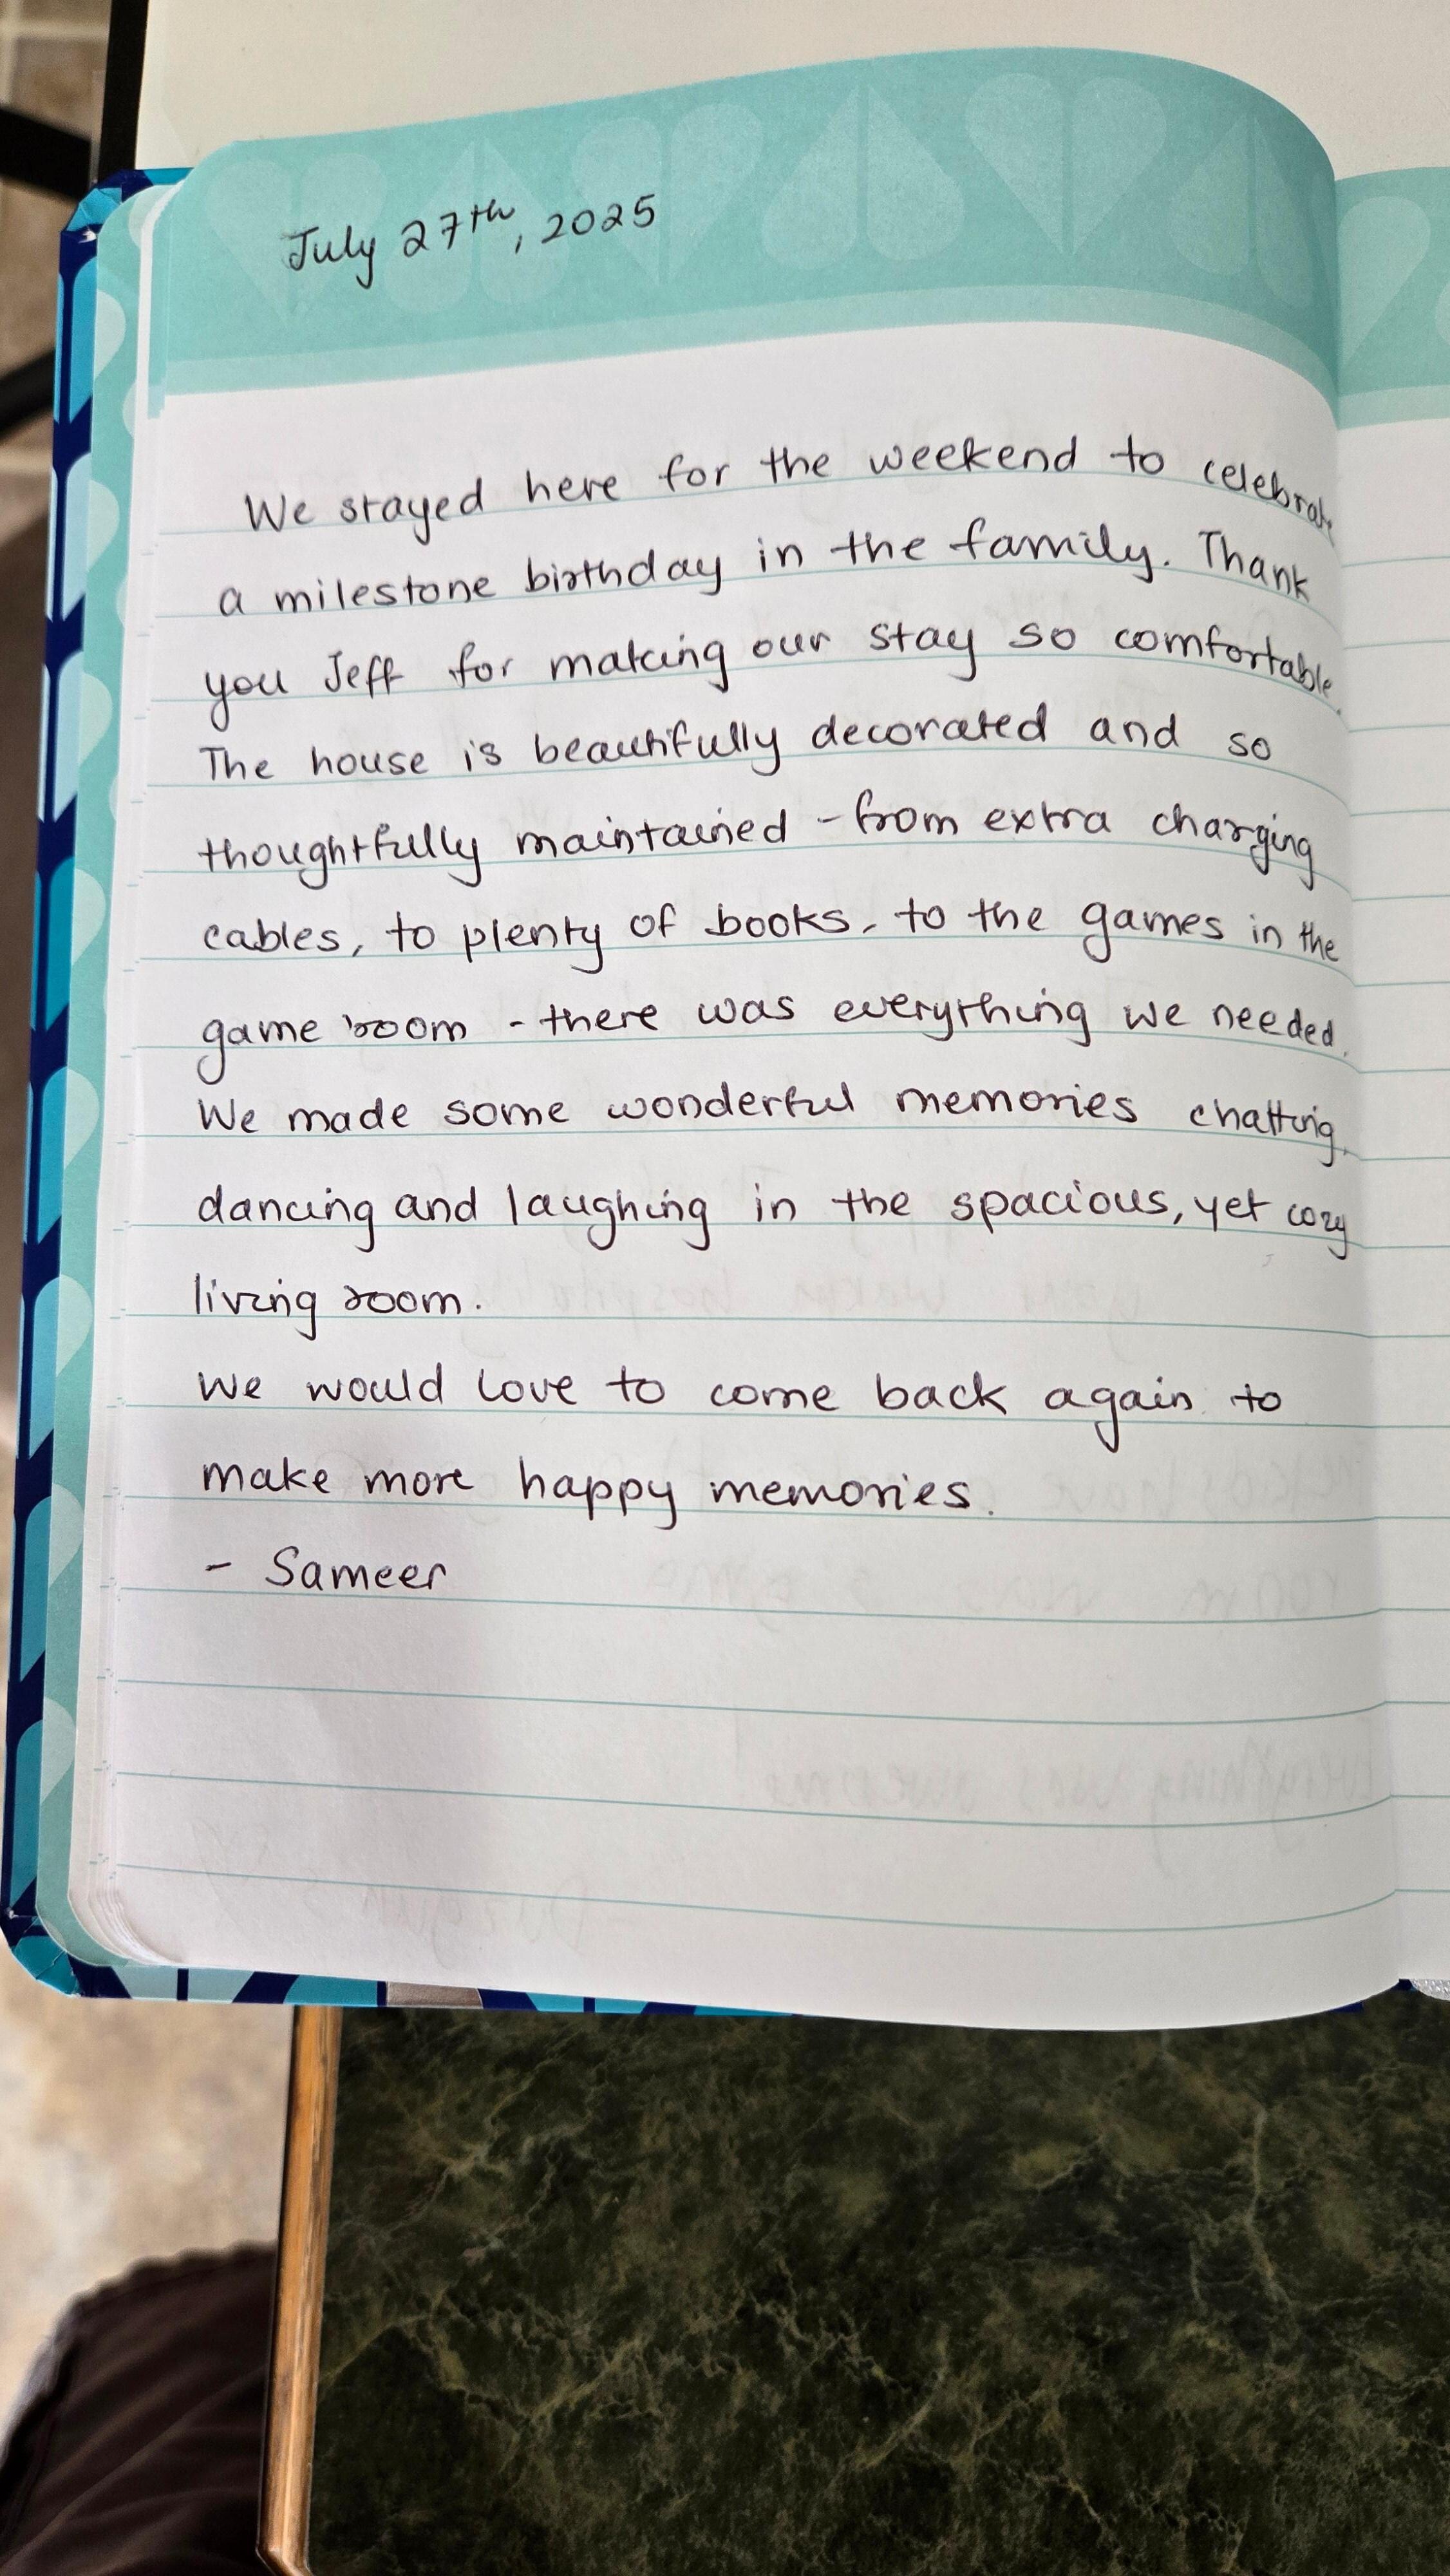 July 27th, 2025
We stayed here for the weekend to celebrate
a milestone birthday in the family. Thank
you Jeff for making our stay so comfortable.
The house is beautifully decorated and so
thoughtfully maintained - from extra charging
cables, to plenty of books, to the games in the
game room - there was everything we needed.
We made some wonderful memories chatting,
dancing and laughing in the spacious, yet cozy
living room.
We would love to come back again to
make more happy memories.
- Sameer